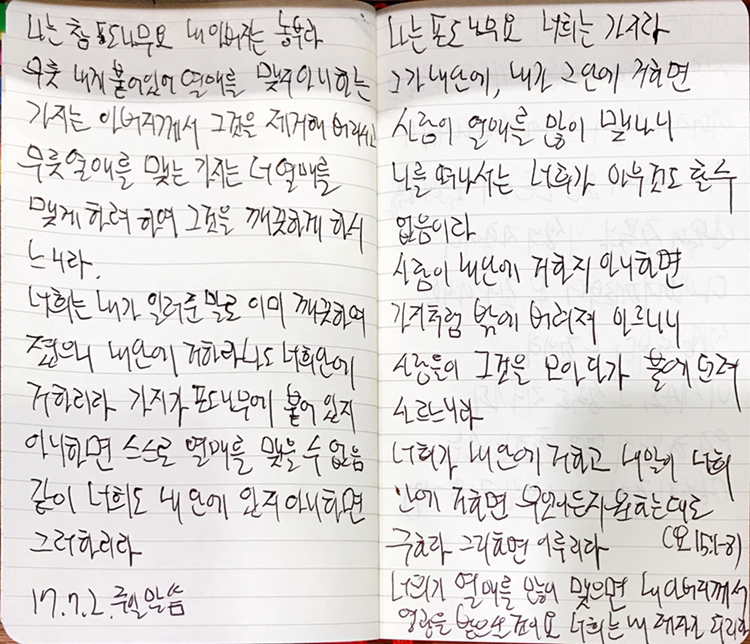 나는 참 포도나무요 내 아버지는 농부라
무릇 내게 붙어있어 열매를 맺지 아니하는
가지는 아버지께서 그것을 제거해 버리시고
무릇 열매를 맺는 가지는 더 열매를
맺게 하려 하여 그것을 깨끗하게 하시
느니라.
너희는 내가 일러준 말로 이미 깨끗하여
졌으니 내 안에 거하라 나도 너희 안에
거하리라 가지가 포도나무에 붙어 있지
아니하면 스스로 열매를 맺을 수 없음
같이 너희도 내 안에 있지 아니하면
그러하리라
17.7.2. 주일 말씀
나는 포도나무요 너희는 가지라
그가 내 안에, 내가 그 안에 거하면
사람이 열매를 많이 맺나니
나를 떠나서는 너희가 아무것도 할 수
없음이라
사람이 내 안에 거하지 아니하면
가지처럼 밖에 버려져 마르나니
사람들이 그것을 모아다가 불에 던져
사르느니라
너희가 내 안에 거하고 내 말이 너희
안에 거하면 무엇이든지 원하는대로
구하라 그리하면 이루리라 (요15:1-8)
너희가 열매를 많이 맺으면 내 아버지께서
영광을 받으실 것이요 너희는 내 제자가 되리라